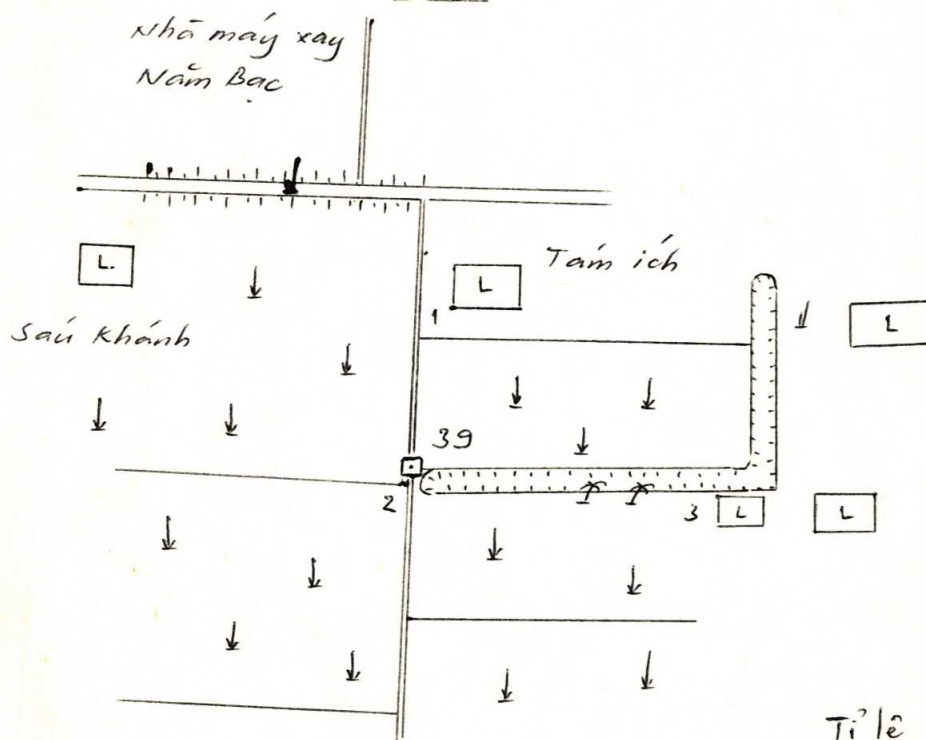 Nhà máy xay
Năm Bạc
L.
L
Tám ích
L
1
Sáu Khánh
39
2
3
L
L
Tỉ lệ